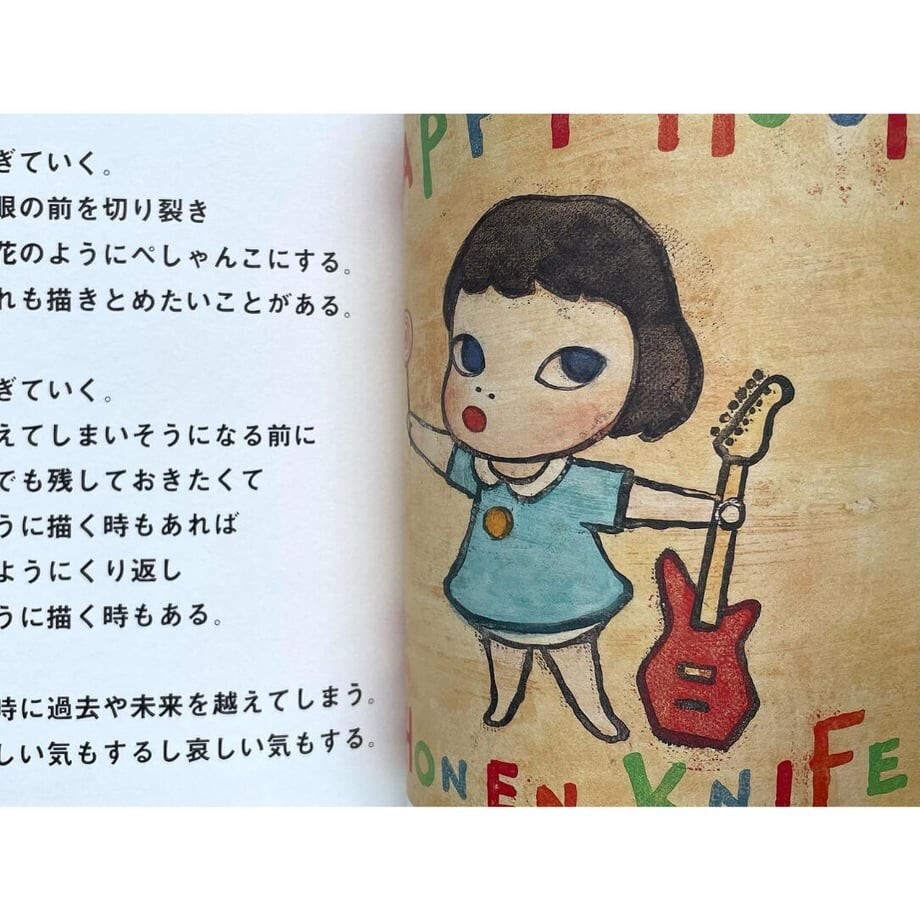 ぎていく。
眼の前を切り裂き
花のようにぺしゃんこにする。
れも描きとめたいことがある。
ぎていく。
えてしまいそうになる前に
でも残しておきたくて
うに描く時もあれば
ようにくり返し
うに描く時もある。
時に過去や未来を越えてしまう。
しい気もするし哀しい気もする。
APPY HOUR
HONEN KNIFE